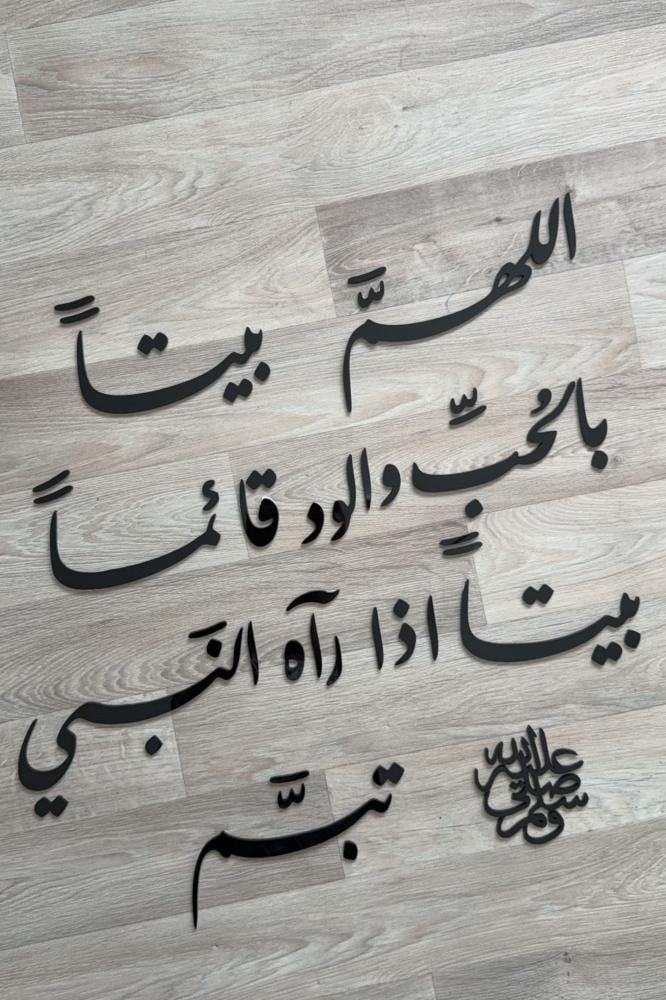 اللهمَّ بيتاً
بالحُبِّ والود قائماً
بيتاً اذا رآه النَبي
صلى الله عليه وسلم تبسَّم